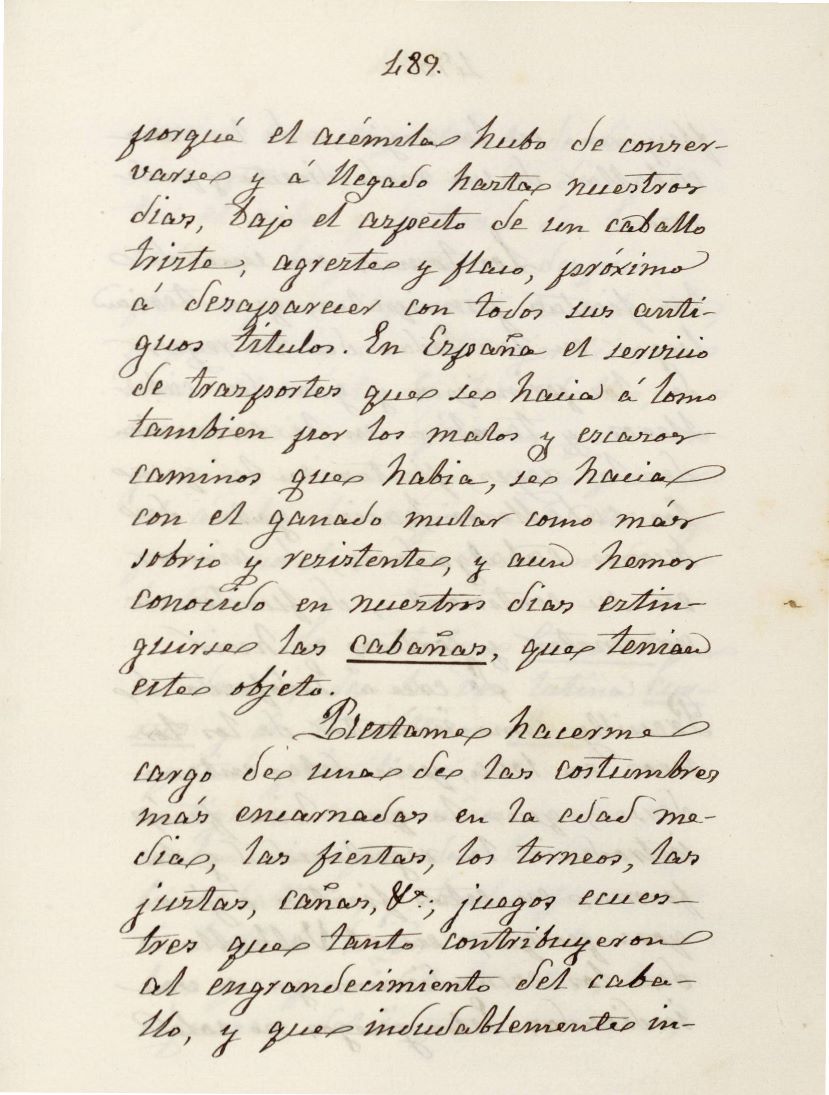 489.
porqué el acémila hubo de conser-
varse y á llegado hasta nuestros
dias, bajo el aspecto de un caballo
triste, agreste y flaco, próximo
á desaparecer con todos sus anti-
guos títulos. En España el servicio
de trasportes que se hacia á lomo
tambien por los malos y escasos
caminos que habia, se hacia
con el ganado mular como más
sobrio y resistente, y aun hemos
conocido en nuestros dias estin-
guirse las cabañas, que tenian
este objéto.
Réstame hacerme
cargo de una de las costumbres
más encarnadas en la edad me-
dia, las fiestas, los torneos, las
justas, cañas, &a.; juegos ecues-
tres que tanto contribuyeron
al engrandecimiento del caba-
llo, y que indudablemente in-